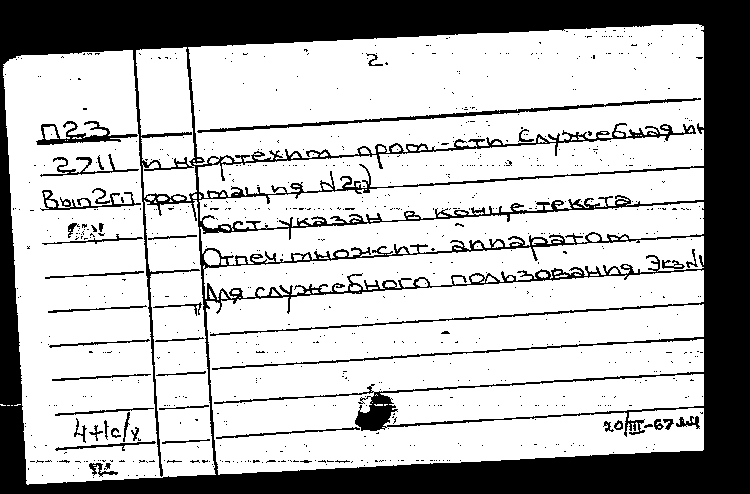 2.
П23
2711 и нефтехим пром.-сти. Служебная ин
Вып2гп формация N2гп)
Сост. указан в конце текста.
Отпеч. множит. аппаратом.
Для служебного пользования. Экз N1
4+1с/х
20/III-67